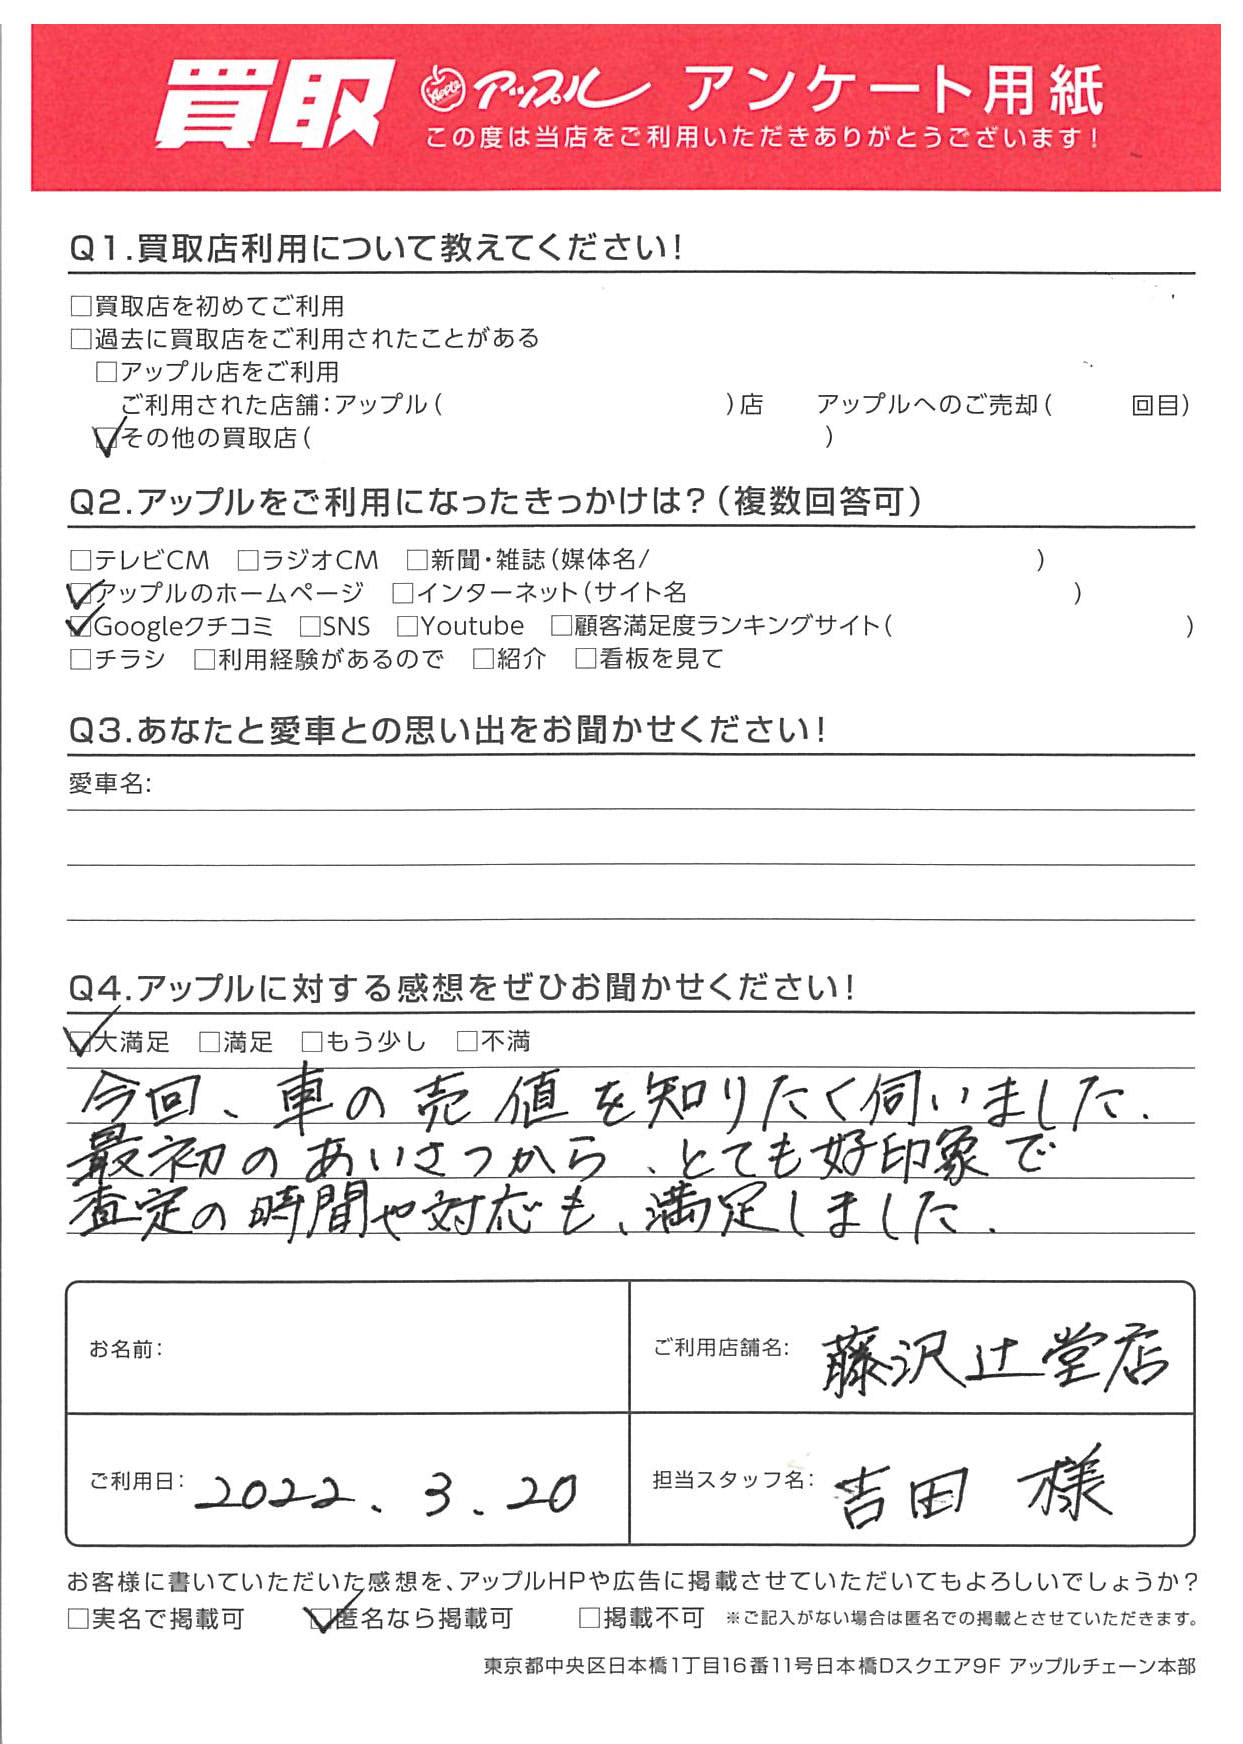 買取 Apple アップル アンケート用紙
この度は当店をご利用いただきありがとうございます!
Q1.買取店利用について教えてください!
□買取店を初めてご利用
□過去に買取店をご利用されたことがある
□アップル店をご利用
ご利用された店舗:アップル( )店 アップルへのご売却( 回目)
☑その他の買取店( )
Q2.アップルをご利用になったきっかけは?(複数回答可)
□テレビCM □ラジオCM □新聞・雑誌(媒体名/ )
☑アップルのホームページ □インターネット(サイト名 )
☑Googleクチコミ □SNS □Youtube □顧客満足度ランキングサイト( )
□チラシ □利用経験があるので □紹介 □看板を見て
Q3.あなたと愛車との思い出をお聞かせください!
愛車名:
Q4.アップルに対する感想をぜひお聞かせください!
☑大満足 □満足 □もう少し □不満
今回、車の売値を知りたく伺いました.
最初のあいさつから、とても好印象で
査定の時間や対応も、満足しました.
お名前: ご利用店舗名: 藤沢辻堂店
ご利用日: 2022.3.20 担当スタッフ名: 吉田 様
お客様に書いていただいた感想を、アップルHPや広告に掲載させていただいてもよろしいでしょうか?
□実名で掲載可 ☑匿名なら掲載可 □掲載不可 ※ご記入がない場合は匿名での掲載とさせていただきます。
東京都中央区日本橋1丁目16番11号日本橋Dスクエア9F アップルチェーン本部